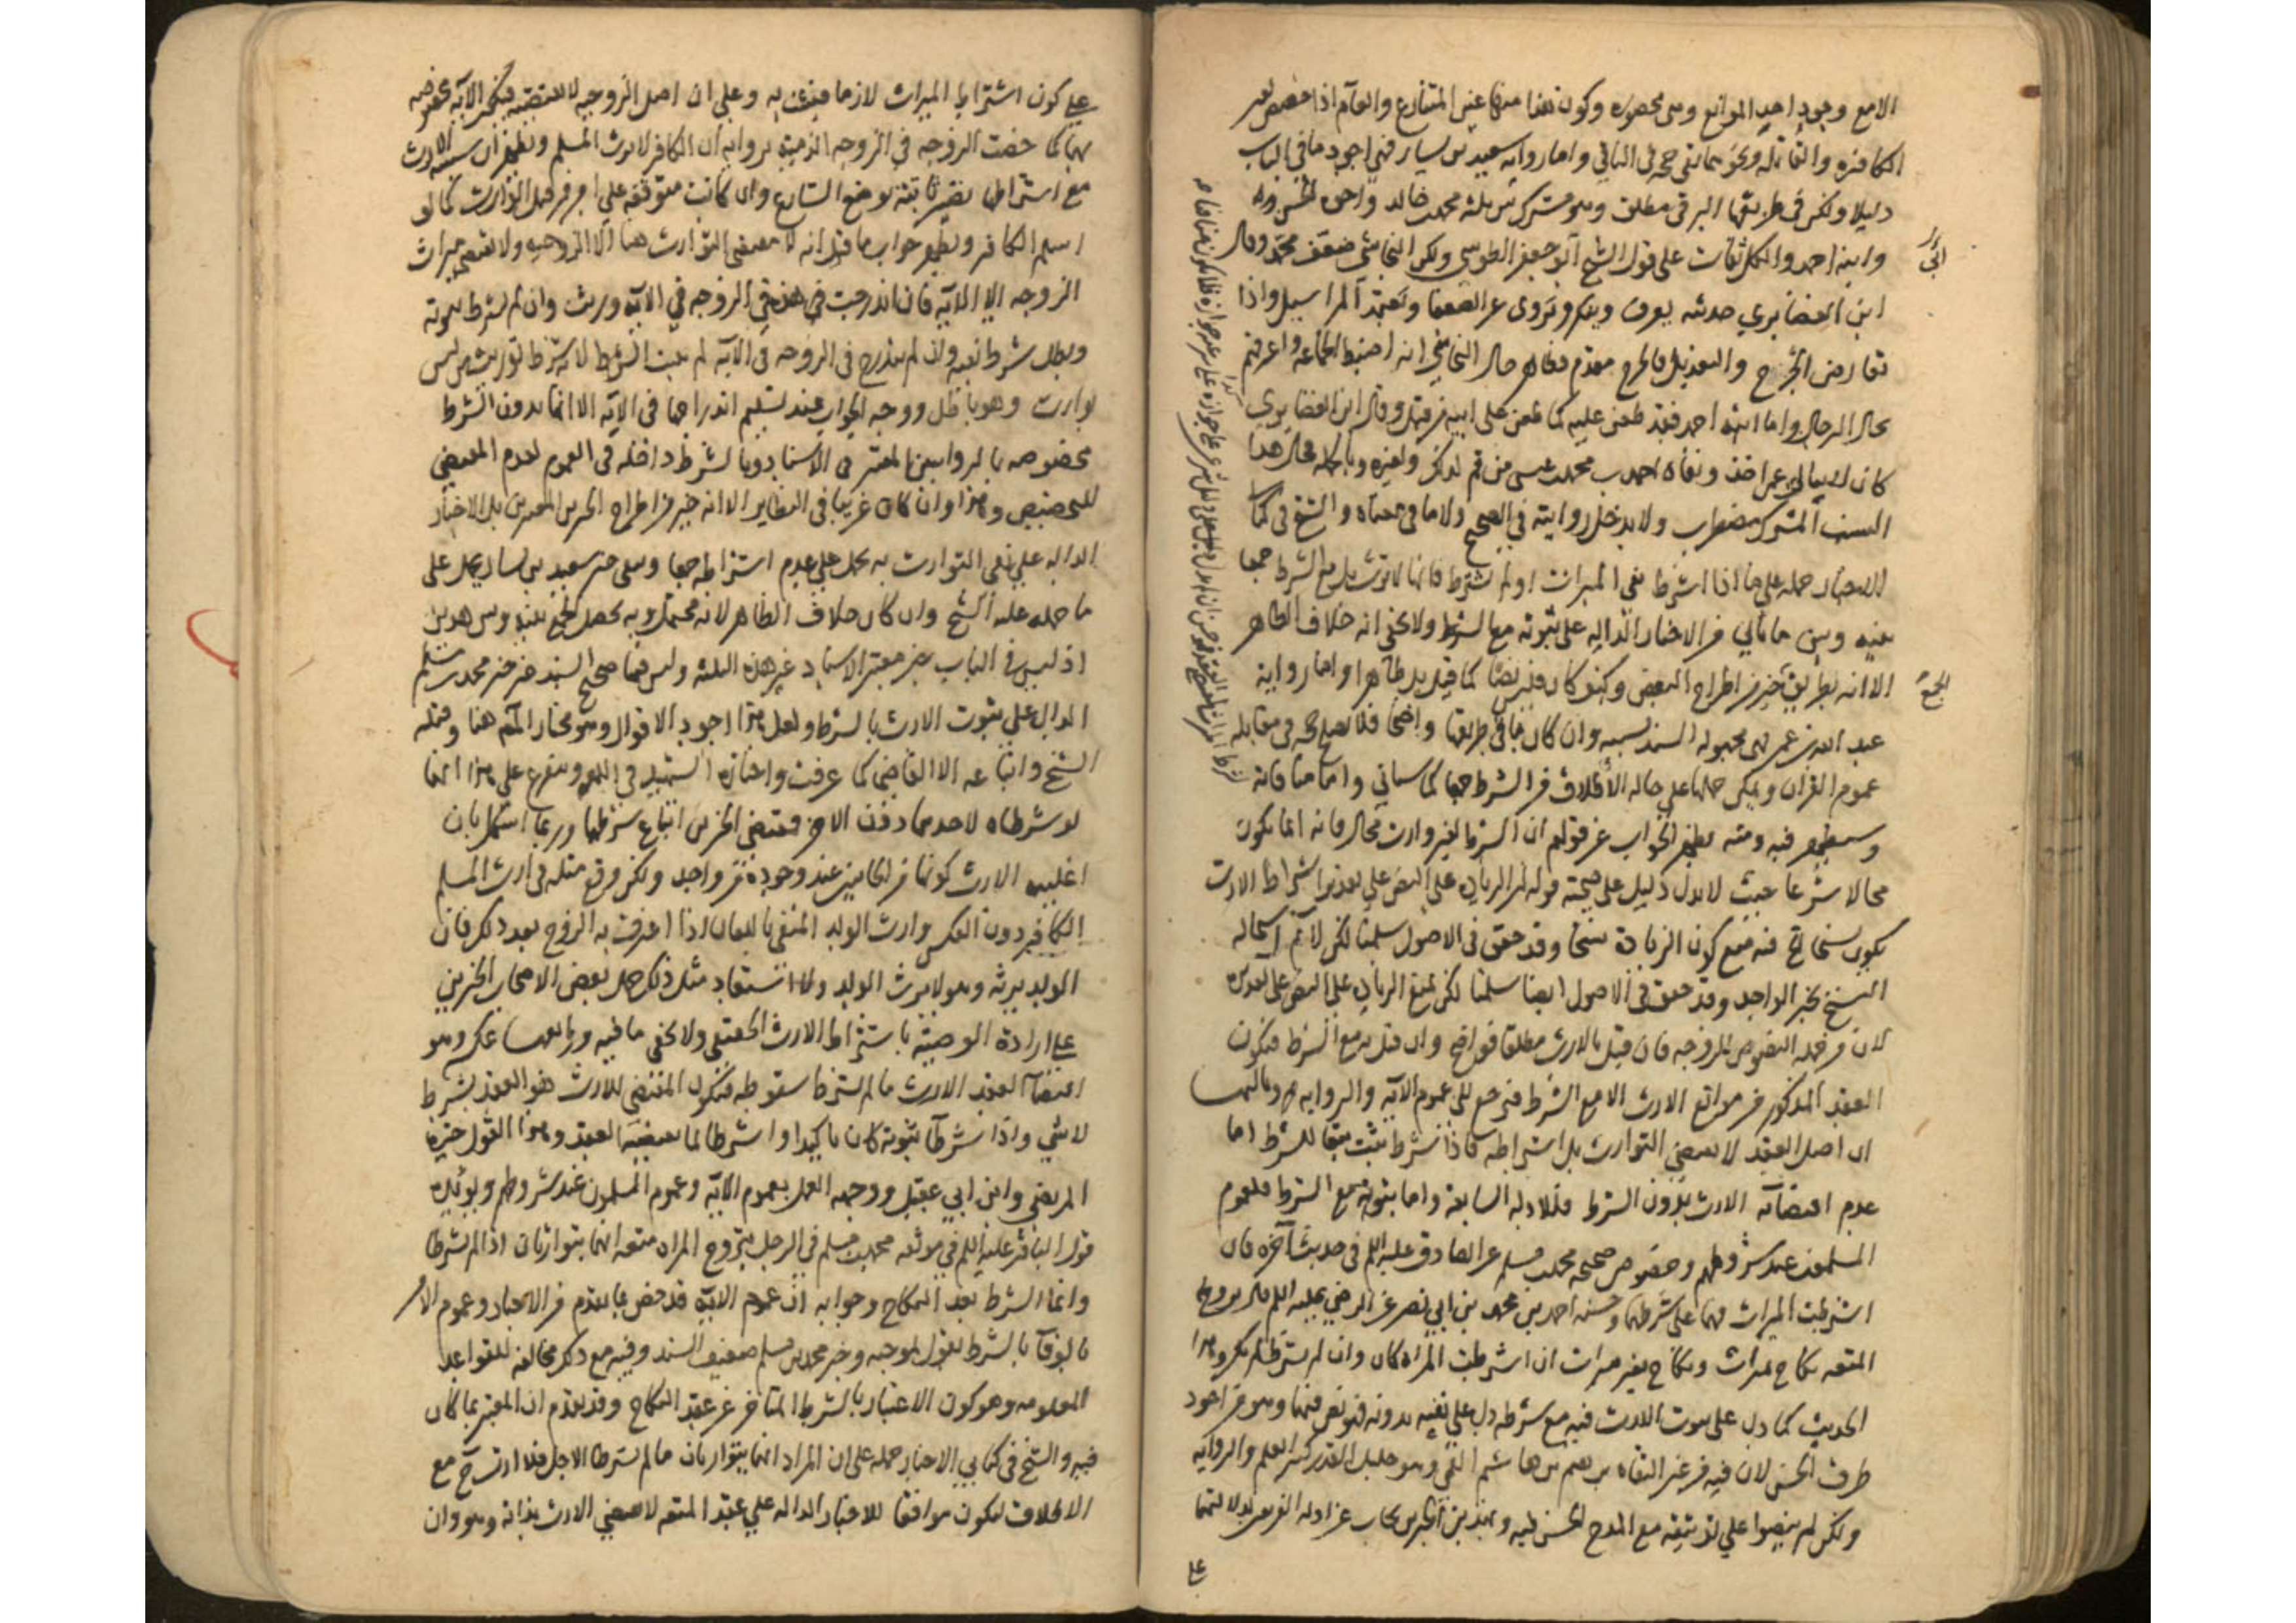 الامع وجود احد الموانع وهى محصوره وكون هذا منها عين المتنازع والعام اذا خصص بغير
الكافره والقاتله ونحوهما بقى حجه فى الباقى واما روايه سعيد بن يسار فهى اجود ما فى الباب
دليلا ولكن فى طريقها البرقى مطلقا وهو مشترك بين ثلثه محمد بن خالد واخوه الحسن
وابنه احمد والكل ثقات على قول الشيخ ابو جعفر الطوسى ولكن النجاشى ضعف محمد وقال
ابن الغضايرى حديثه يعرف وينكر ويروى عن الضعفا ويعتمد المراسيل واذا
تعارض الجرح والتعديل فالجرح مقدم وظاهر حال النجاشى انه اضبط الجماعه واعرفهم
بحال الرجال واما ابنه احمد فقد طعن عليه كما طعن على ابيه من قبله وقال ابن الغضايرى
كان لا يبالى عمن اخذ ونفاه احمد بن محمد بن عيسى من قم لذلك ولغيره وبالجمله فحال هذا
السند المشترك مضطرب ولا يدخل روايته فى الصحيح ولا ما فى معناه والشيخ فى كتابى
الاخبار حمله على ما اذا اشترط نفى الميراث او لم يشترط فانها لا ترث بل مع الشرط جمعا
بينه وبين ما ياتى من الاخبار الداله على ثبوته مع الشرط ولا يخفى انه خلاف الظاهر
الا انه بطريق الجمع خير من اطراح البعض وكيف كان فليس نصا كما قيل بل ظاهرا واما رواية
عبد الله بن عمر فهى مجهوله السند بسببه وان كان باقى طريقها واضحا فلا يصلح حجه فى مقابله
عموم القران ويمكن حملها على حاله الاطلاق من الشرط جمعا كما سياتى واما منافاته
وسيظهر فيه ومنه يظهر الجواب عن قولهم ان الشرط لغير وارث محال فانه انما يكون
محالا شرعا حيث لا يدل دليل على صحته قوله الزيادة على النص على تقدير اشتراط الارث
يكون نسخا قلنا فيه منع كون الزيادة نسخا وقد حقق فى الاصول سلمنا لكن لا نم استحاله
النسخ بخبر الواحد وقد حقق فى الاصول ايضا سلمنا لكن نمنع الزيادة على النص على تقديره
لان من جمله النصوص للزوجه فان قيل بالارث مطلقا فواضح وان قيل به مع الشرط فيكون
العقد المذكور من موانع الارث الا مع الشرط فيرجع الى عموم الايه والروايه وثالثها
ان اصل العقد لا يقتضى التوارث بل اشتراطه فاذا شرط يثبت تبعا للشرط اما
عدم اقتضائه الارث بدون الشرط فللادله السابقة واما ثبوته مع الشرط فلعموم
المسلمون عند شروطهم وخصوص صحيحه محمد بن مسلم عن الصادق عليه السلم فى حديث آخره فان
اشترطت الميراث فهما على شرطهما وحسنه احمد بن محمد بن ابى نصر عن الرضى عليه السلم قال تزويج
المتعه نكاح بميراث ونكاح بغير ميراث ان اشترطت الميراث كان وان لم يشترط لم يكن وهذا
الحديث كما دل على ثبوت الارث فيه مع شرطه دل على نفيه بدونه فهو نص فيهما وهو من اجود
طرق الحسن لان فيه من غير الثقاه ابرهيم بن هاشم القمى وهو جليل القدر كثير العلم والروايه
ولكن لم ينصوا على توثيقه مع المدح الحسن فيه وبهذين الخبرين يجاب عن ادله الفريقين لدلالتهما
على
ابى
الجمع
على كون اشتراط الميراث لازما فيثبت به وعلى ان اصل الزوجيه لا يقتضيه فتكون الايه مخصوصه
بهما كما خصت الزوجه فى الزوجه الذميه بروايه ان الكافر لا يرث المسلم ويظهر ان سببيه الارث
مع اشتراطه يصير ثابتة بوضع الشارع وان كانت متوقفه على امر من قبل الوارث كما لو
اسلم الكافر ويظهر جواب ما قيل انه لا مقتضى للتوارث هنا الا الزوجيه ولا يقتضى ميراث
الزوجه الا الايه فان اندرجت هذه فى الزوجه فى الايه ورثت وان لم يشترط ثبوته
وبطل شرط نفيه وان لم يندرج فى الزوجه فى الايه لم يثبت بالشرط لانه شرط توريث من ليس
بوارث وهو باطل ووجه الجواب عند تسليم اندراجها فى الايه الا انها بدون الشرط
مخصوصه بالروايتين المعتبر فى الاسناد وبالشرط داخله فى العموم لعدم المقتضى
للتخصيص وهذا وان كان غريبا فى النظاير الا انه خير من اطراح الخبرين المعتبرين بل الاخبار
الداله على نفى التوارث به يحمل على عدم اشتراطه جمعا وبقى خبر سعيد بن يسار يحمل على
ما حمله عليه الشيخ وان كان خلاف الظاهر لانه محتمل وبه يحصل الجمع بينه وبين هذين
اذ ليس فى الباب خبر معتبر الاسناد غير هذه الثلثه وليس فيها صحيح السند غير خبر محمد بن مسلم
الدال على ثبوت الارث بالشرط ولعل هذا اجود الاقوال وهو مختار المص هنا وقبله
الشيخ واتباعه الا القاضى كما عرفت واختاره الشهيد فى اللمعه ويتفرع على هذا انهما
لو شرطاه لاحدهما دون الاخر فمقتضى الخبرين اتباع شرطهما وربما استشكل بان
اغلبيه الارث كونها من الجانبين عند وجوده من واحد ولكن وقع مثله فى ارث المسلم
الكافر دون العكس وارث الولد المنفى باللعان اذا اعترف به الزوج بعد ذلك فان
الولد يرثه وهو لا يرث الولد ولا استبعاد مثل ذلك حمل بعض الاصحاب الخبرين
على ارادة الوصية باشتراط الارث الحقيقى ولا يخفى ما فيه ورابعها عكسه وهو
اقتضآ العقد الارث ما لم يشترط سقوطه فيكون المقتضى للارث هو العقد بشرط
لا شى واذا شرطا ثبوته كان تاكيدا واشتراطا لما يقتضيه العقد وهذا القول خيرة
المرتضى وابن ابى عقيل ووجهه العمل بعموم الايه وعموم المسلمون عند شروطهم ويؤيده
قول الباقر عليه السلم فى موثقه محمد بن مسلم فى الرجل يتزوج المراه متعه انهما يتوارثان اذا لم يشترطا
وانما الشرط بعد النكاح وجوابه ان عموم الايه قد خص بما تقدم من الاخبار وعموم الامر
بالوفآ بالشرط نقول بموجبه وخبر محمد بن مسلم ضعيف السند وفيه مع ذلك مخالفه للقواعد
المعلومه وهو كون الاعتبار بالشرط المتاخر عن عقد النكاح وقد تقدم ان المعتبر بما كان
فيه والشيخ فى كتابى الاخبار حمله على ان المراد انهما يتوارثان ما لم يشترطا الاجل فلا ارث ح مع
الاطلاق ليكون موافقا للاخبار الداله على عقد المتعه لا يقتضى الارث بذاته وهو وان